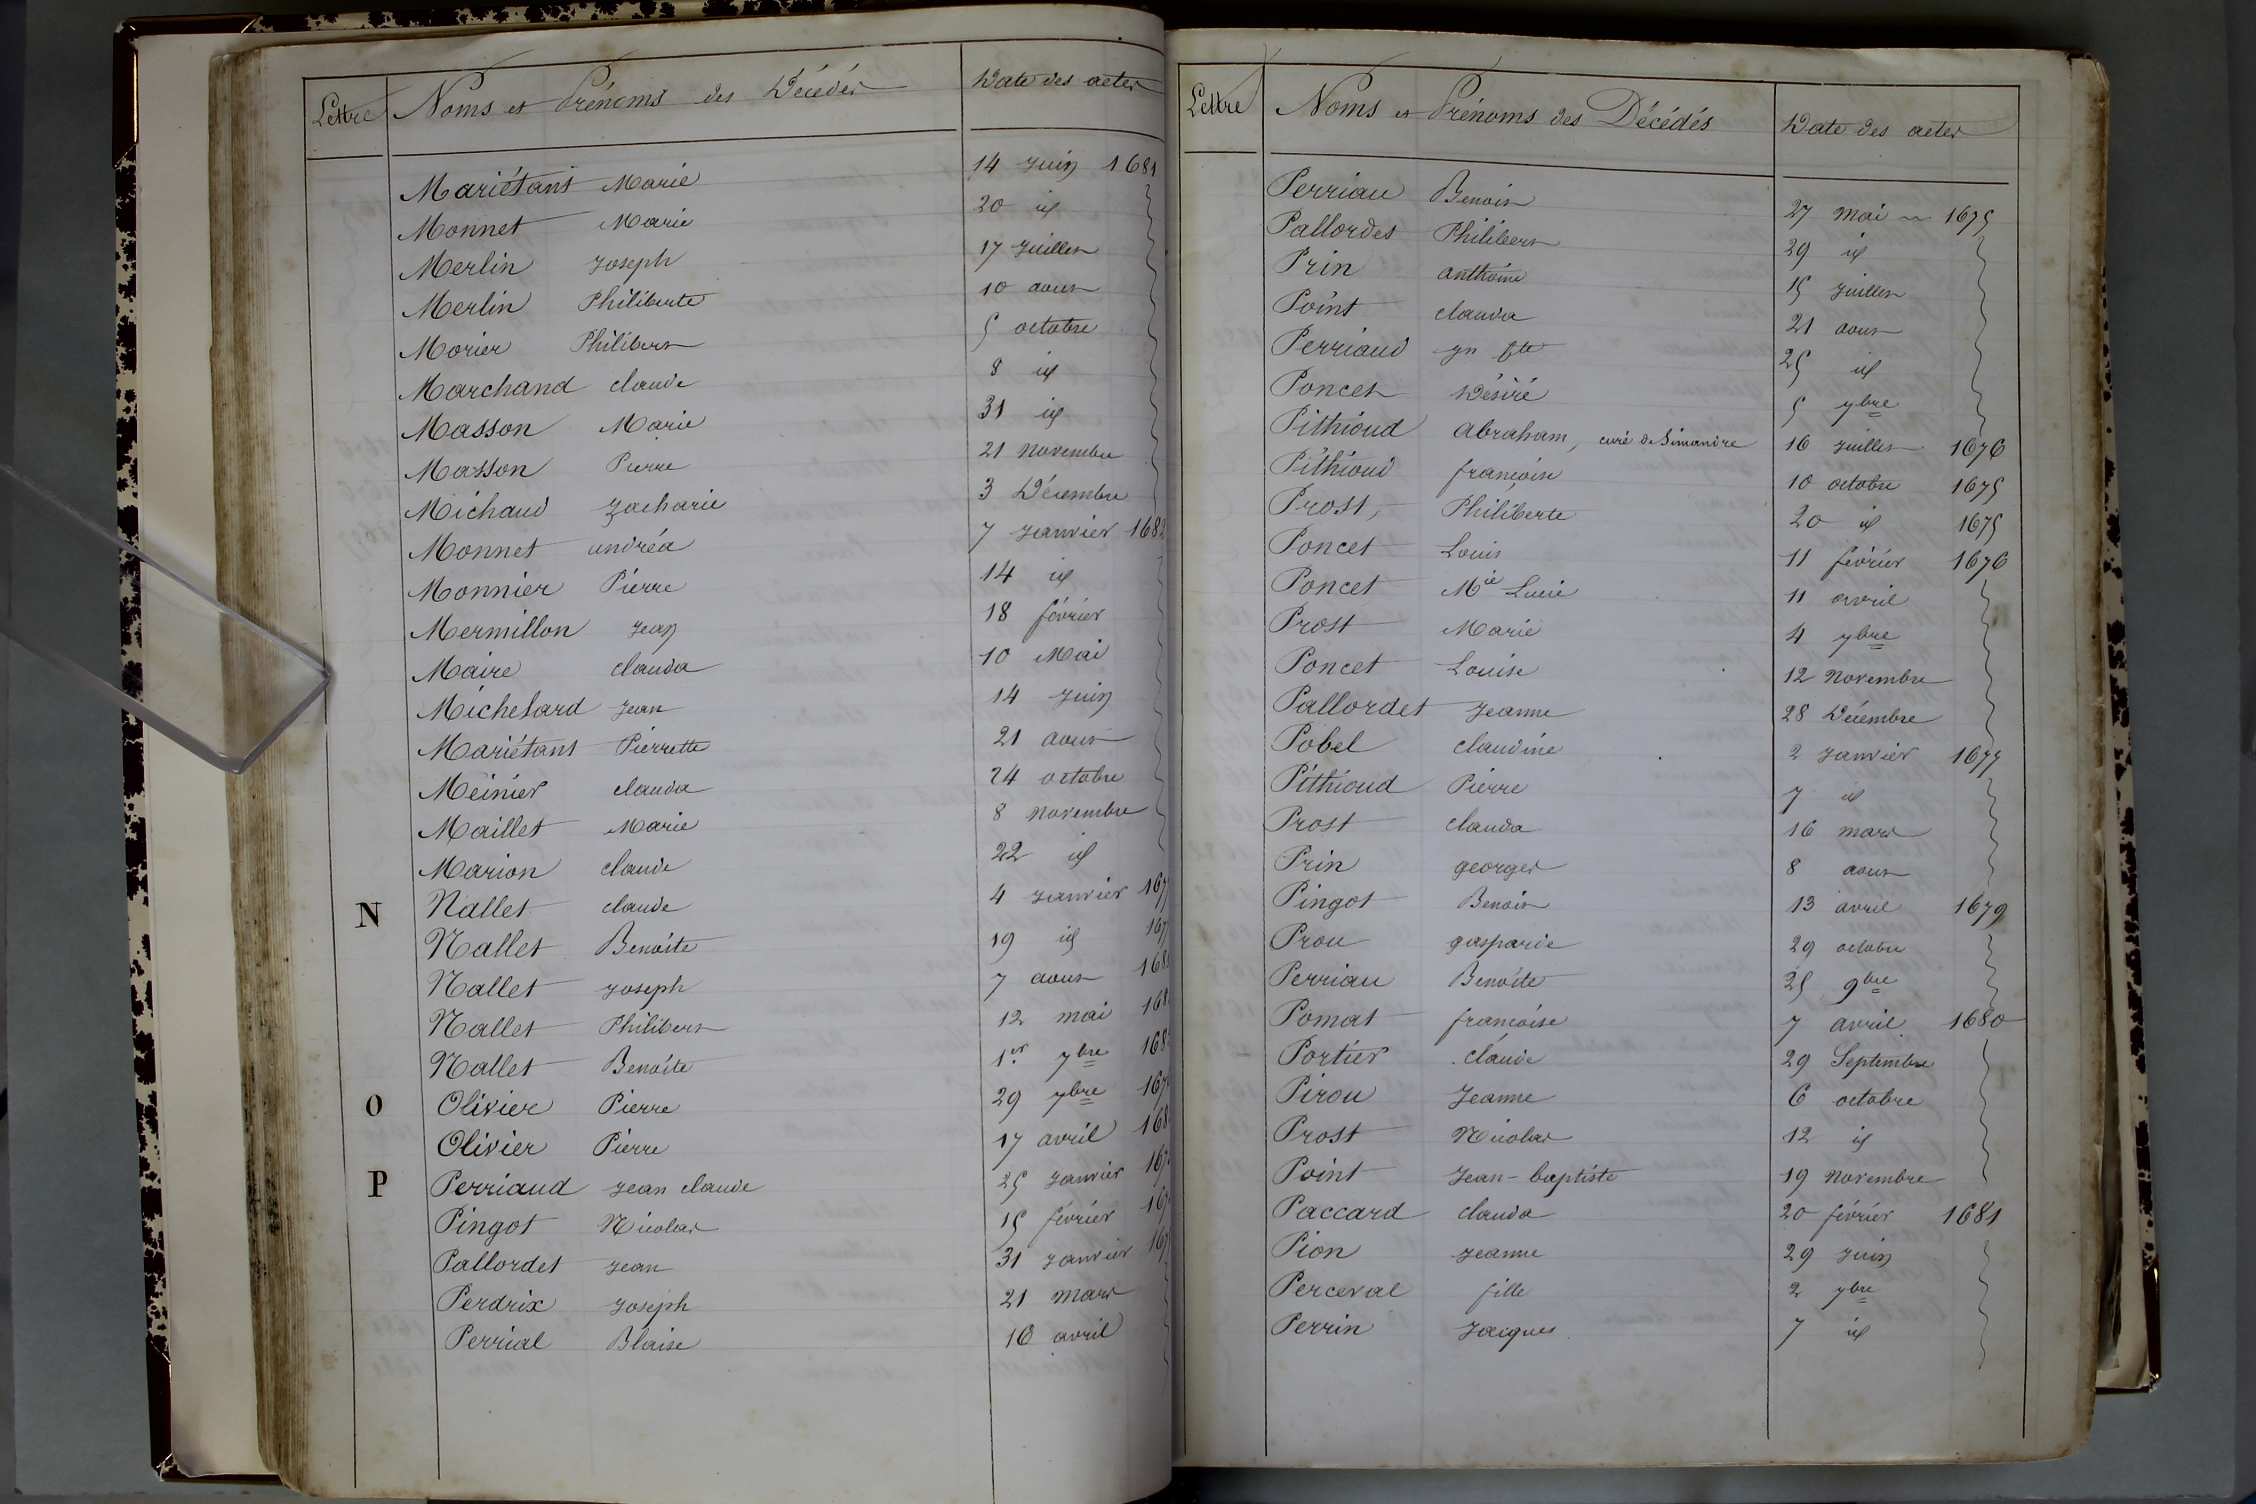 Lettre Noms et Prénoms des Décédés Date des actes
Mariétant Marie 14 Juin 1681
Monnet Marie 20 id
Merlin Joseph 17 Juillet
Merlin Philiberte 10 aout
Morier Philibert 5 octobre
Marchand claude 8 id
Masson Marie 31 id
Masson Pierre 21 Novembre
Michaud Zacharie 3 Décembre
Monnet andréa 7 Janvier 1682
Monnier Pierre 14 id
Mermillon Jean 18 février
Maire clauda 10 Mai
Michelard Jean 14 Juin
Mariétant Pierrette 21 aout
Meinier clauda 24 octobre
Maillet Marie 8 Novembre
Marion claude 22 id
N Nallet claude 4 Janvier 167
Nallet Benoite 19 id 167
Nallet Joseph 7 aout 168
Nallet Philibert 12 mai 168
Nallet Benoite 1er 7bre 168
O Olivier Pierre 29 7bre 167
Olivier Pierre 17 avril 168
P Perriaud Jean claude 25 Janvier 167
Pingot Nicolas 15 février 167
Pallordet Jean 31 Janvier 167
Perdrix Joseph 21 mars
Perrial Blaise 16 avril
Lettre Noms et Prénoms des Décédés Date des actes
Perriau Benoit 27 Mai 1675
Pallordes Philibert 29 id
Prin anthoine 15 Juillet
Point clauda 21 aout
Perriaud 25 id
Poncet Désiré 5 7bre
Pithioud abraham, curé de Simandre 16 Juillet 1676
Pithioud francoise 10 octobre 1675
Prost, Philiberte 20 id 1675
Poncet Louis 11 février 1676
Poncet Mie Lucie 11 avril
Prost Marie 4 7bre
Poncet Louise 12 Novembre
Pallordet Jeanne 28 Décembre
Pobel claudine 2 Janvier 1677
Pithioud Pierre 7 id
Prost clauda 16 mars
Prin georges 8 aout
Pingot Benoit 13 avril 1679
Prou gasparde 29 octobre
Perriau Benoite 25 9bre
Pomat francoise 7 avril 1680
Portier claude 29 Septembre
Pirou Jeanne 6 octobre
Prost Nicolas 12 id
Point Jean-baptiste 19 Novembre
Paccard clauda 20 février 1681
Pion Jeanne 29 Juin
Perceval fille 2 7bre
Perrin Jacques 7 id